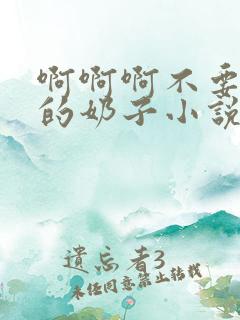 啊啊啊不要
的奶子小說
遺忘者3
未任同意禁止转载